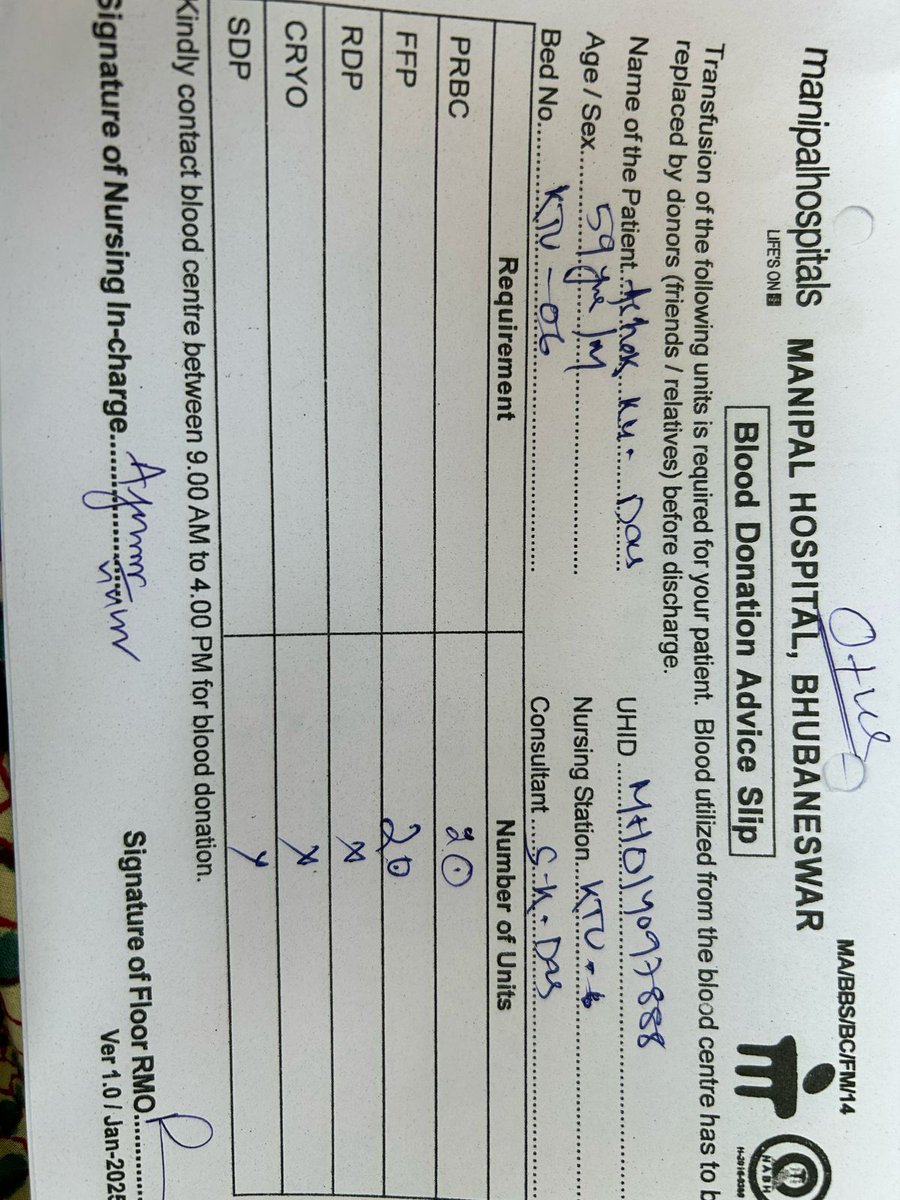 O+ve
MA/BBS/BC/FM/14
manipalhospitals MANIPAL HOSPITAL, BHUBANESWAR
LIFE'S ON
NABH
Blood Donation Advice Slip
Transfusion of the following units is required for your patient. Blood utilized from the blood centre has to b
replaced by donors (friends / relatives) before discharge.
Name of the Patient Ashok Ku. Das UHID MH014097888
Age / Sex 59 yrs / M Nursing Station KTU
Bed No. KTU - 06 Consultant S.K. Das
Requirement Number of Units
PRBC 20
FFP 20
RDP x
CRYO x
SDP x
Kindly contact blood centre between 9.00 AM to 4.00 PM for blood donation.
Signature of Nursing In-charge Signature of Floor RMO
Ver 1.0 / Jan-2025